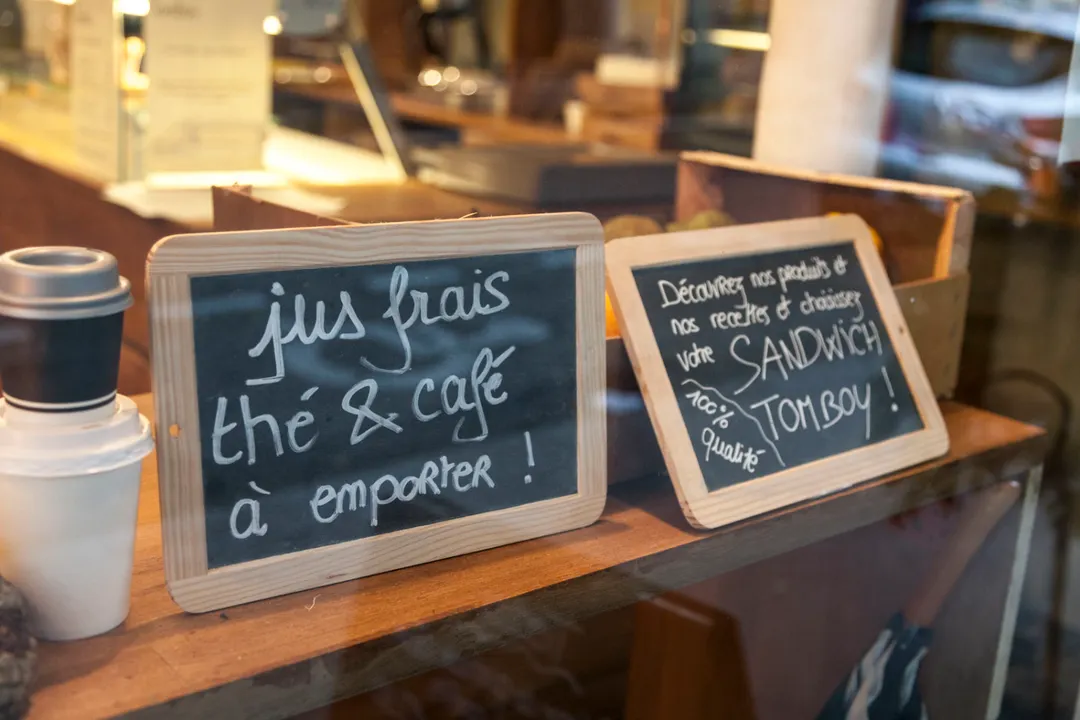 jus frais
thé & café
à emporter !
Découvrez nos produits et
nos recettes et choisissez
votre SANDWICH
TOMBOY !
100%
qualité